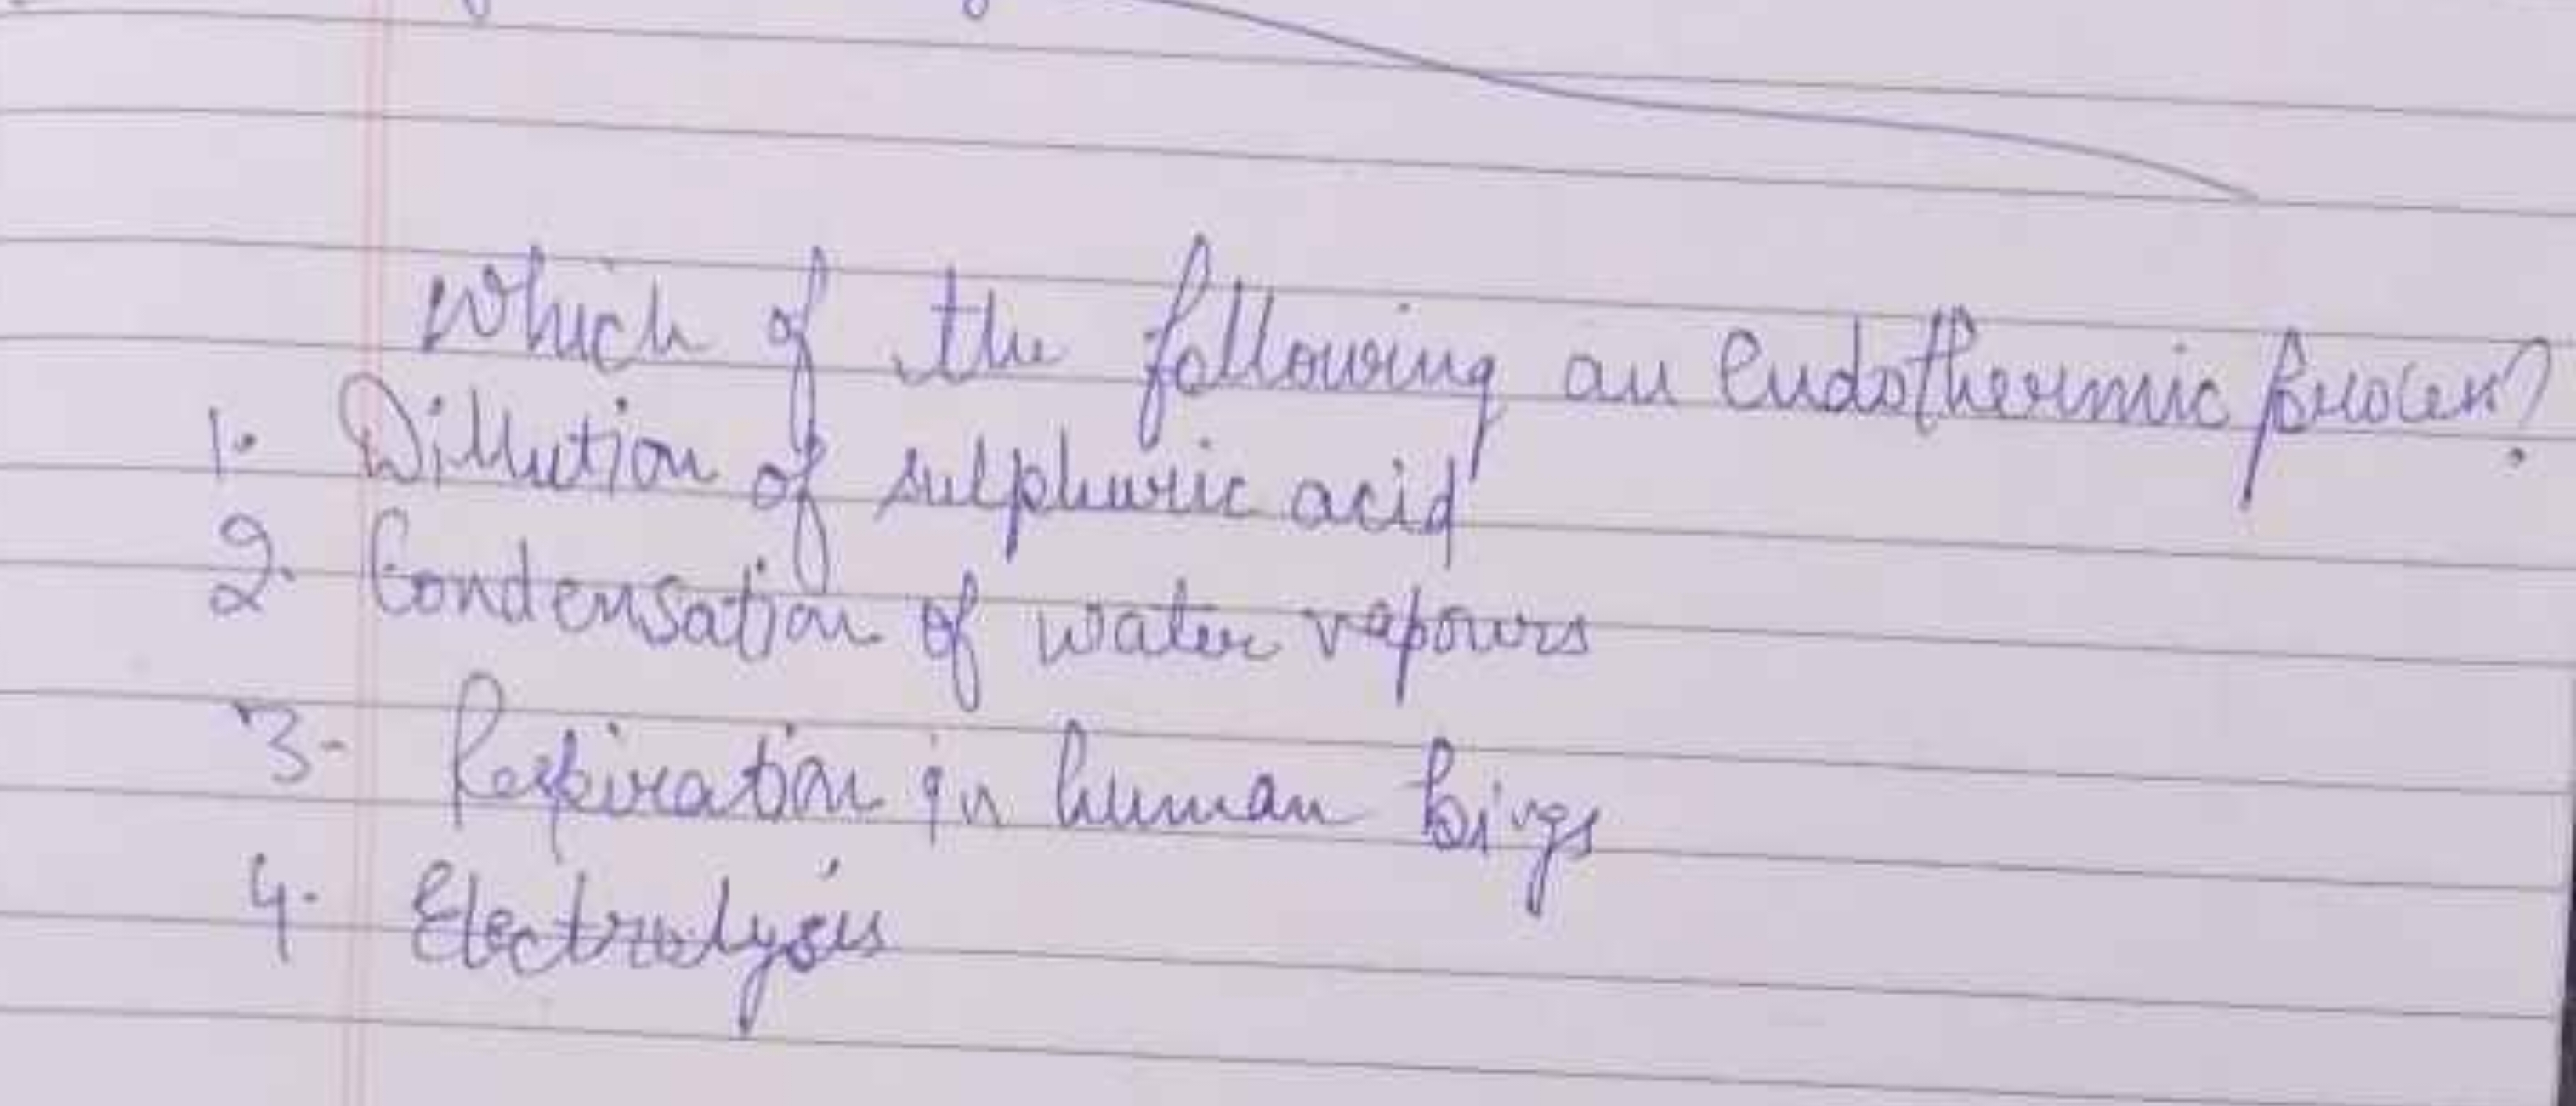 Which of the following an Endothermic process?
1. Dillution of sulphuric acid
2. Condensation of water vapours
3- Respiration in human bings
4. Electrolysis